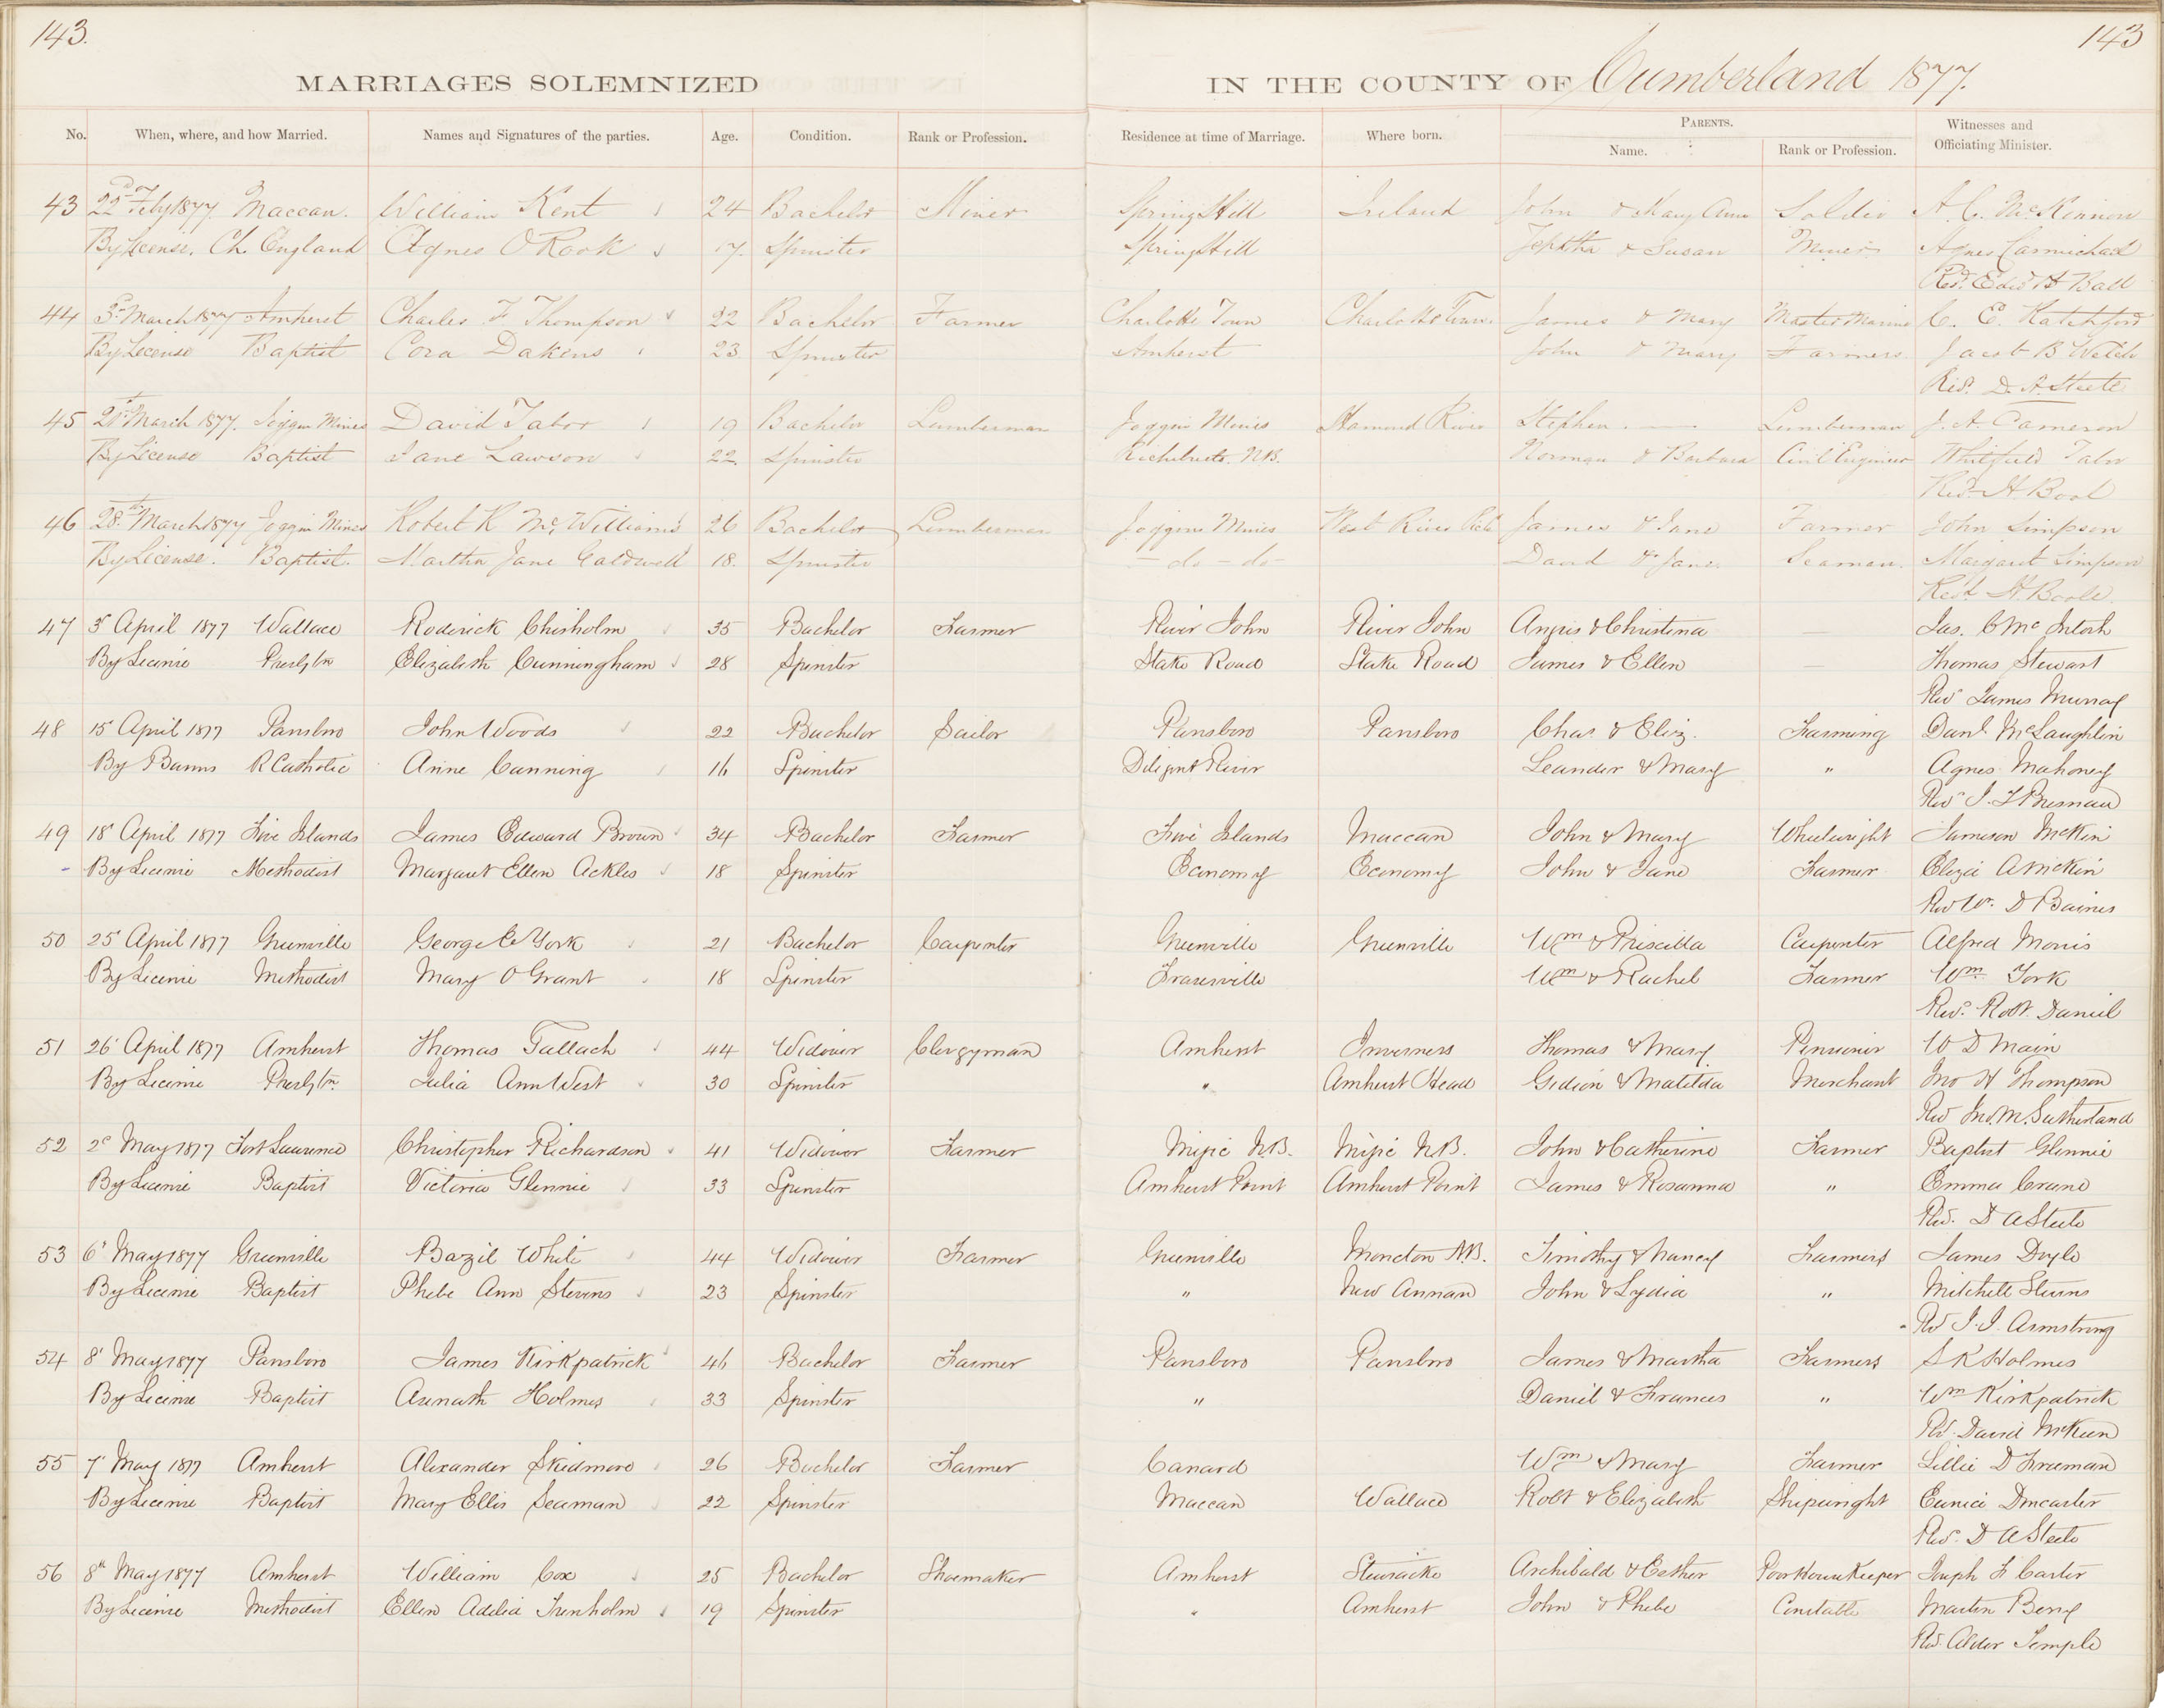 143. 143
MARRIAGES SOLEMNIZED IN THE COUNTY OF Cumberland 1877.
No. When, where, and how Married. Names and Signatures of the parties. Age. Condition. Rank or Profession. Residence at time of Marriage. Where born. PARENTS. Name. Rank or Profession. Witnesses and Officiating Minister.
43 22d Feby 1877 Maccan. William Kent 24 Bachelor Miner Spring Hill Ireland John & Mary Ann Soldier A. C. McKinnon
By License. Ch. England Agnes O Rook 17. Spinster Spring Hill Jeptha & Susan Miner Agnes Carmichael
Revd. Edwd H Ball
44 3d March 1877 Amherst Charles F Thompson 22 Bachelor Farmer Charlotte Town Charlotte Town James & Mary Master Marine C. E. Ratchford
By License Baptist Cora Dakins 23 Spinster Amherst John & Mary Farmers Jacob B Welsh
Revd. D. A. Steele
45 21st March 1877. Joggin Mines David Tabor 19 Bachelor Lumberman Joggin Mines Hamond River Stephen — Lumberman J. A. Cameron
By License Baptist Jane Lawson 22. Spinster Richibucto. N.B. Norman & Barbara Civil Engineer Whitfield Tabor
Revd. H Bool
46 28th March 1877 Joggin Mines Robert R Mc Williams 26 Bachelor Lumberman Joggins Mines West River James & Jane Farmer John Simpson
By License. Baptist. Martha Jane Caldwell 18. Spinster — do — do — David & Jane Seaman. Margaret Simpson
Revd. H. Boole
47 3d April 1877 Wallace Roderick Chisholm 35 Bachelor Farmer River John River John Angus & Christina — Jas. C Mc Intosh
By License Presbytn Elizabeth Cunningham 28 Spinster Stake Road Stake Road James & Ellen — Thomas Stewart
Revd James Murray
48 15 April 1877 Parrsboro John Woods 22 Bachelor Sailor Parrsboro Parrsboro Chas. & Eliz. Farming Danl. McLaughlin
By Banns R Catholic Anne Canning 16 Spinster Diligent River Leander & Mary " Agnes Mahoney
Revd J. T Bresnan
49 18 April 1877 Five Islands James Edward Brown 34 Bachelor Farmer Five Islands Maccan John & Mary Wheelwright Jameson McKin
By License Methodist Margaret Ellen Ackles 18 Spinster Economy Economy John & Jane Farmer Eliza A McKin
Rev W. D Baines
50 25 April 1877 Greenville George E York 21 Bachelor Carpenter Greenville Greenville Wm & Priscilla Carpenter Alfred Morris
By License Methodist Mary O Grant 18 Spinster Fraserville Wm & Rachel Farmer Wm. York
Rev. Robt. Daniel
51 26 April 1877 Amherst Thomas Tallach 44 Widower Clergyman Amherst Inverness Thomas & Mary Pensioner W D Main
By License Presbytn. Julia Ann West 30 Spinster " Amherst Head Gideon & Matilda Merchant Jno H Thompson
Rev Jno. M. Sutherland
52 2d May 1877 Fort Laurence Christopher Richardson 41 Widower Farmer Migic N.B. Migic N.B. John & Catherine Farmer Baptist Glennie
By License Baptist Victoria Glennie 33 Spinster Amherst Point Amherst Point James & Rosanna " Emma Crane
Rev. D A Steele
53 6 May 1877 Greenville Bazil White 44 Widower Farmer Greenville Moncton N.B. Timothy & Nancy Farmers James Doyle
By License Baptist Phebe Ann Stevens 23 Spinster " New Annan John & Lydia " Mitchell Sterns
Rev J. I. Armstrong
54 8 May 1877 Parrsboro James Kirkpatrick 46 Bachelor Farmer Parrsboro Parrsboro James & Martha Farmers S K Holmes
By License Baptist Asenath Holmes 33 Spinster " Daniel & Frances " Wm Kirkpatrick
Rev. David McKeen
55 7 May 1877 Amherst Alexander Skidmore 26 Bachelor Farmer Canard Wm & Mary Farmer Lillie D Freeman
By License Baptist Mary Ellis Seaman 22 Spinster Maccan Wallace Robt & Elizabeth Shipwright Eunice Doncaster
Rev. D A Steele
56 8th May 1877 Amherst William Cox 25 Bachelor Shoemaker Amherst Stewiacke Archibald & Esther Poor House Keeper Joseph F Carter
By License Methodist Ellen Adelia Trenholm 19 Spinster " Amherst John & Phebe Constable Martin Berry
Rev. Alder Temple